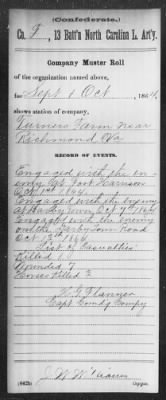 (Confederate.)
Co. F, 13 Batt'n North Carolina L. Art'y.
Company Muster Roll
of the organization named above,
for Sept & Oct, 1864.
shows station of company,
Turners Farm near
Richmond Va
RECORD OF EVENTS.
Engaged with the en-
emy at Fort Harrison
Oct 1st 1864.
Engaged with the enemy
at Oct 7th 1864
Engaged with the Enemy
on the Darbytown Road
Oct 13th 1864
List of Casualties
Killed 1
Wounded 7
Horses Killed 2
H. G. Flanner
Capt Comdg Compy
Copyist.